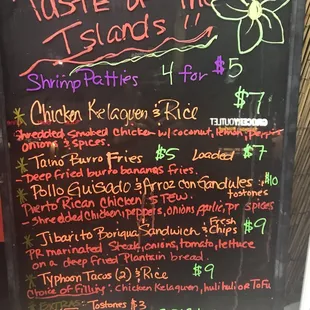 Taste of the
Islands!!
Shrimp Patties 4 for $5
Chicken Kelaguen & Rice $7
Shredded smoked chicken w/coconut, lemon, peppers
onions & spices.
Taino Burro Fries $5 Loaded $7
-Deep fried burro bananas fries.
Pollo Guisado & Arroz con Gandules: $10
Puerto Rican chicken STEW. tostones
-Shredded chicken, peppers, onions garlic, pr spices
Jibarito Boriqua Sandwich & Fresh Chips $9
PR marinated Steak, onions, tomato, lettuce
on a deep fried Plantain bread.
Typhoon Tacos (2) & Rice $9
Choice of Filling: Chicken Kelaguen, huli huli or Tofu
EXTRAS: Tostones $3